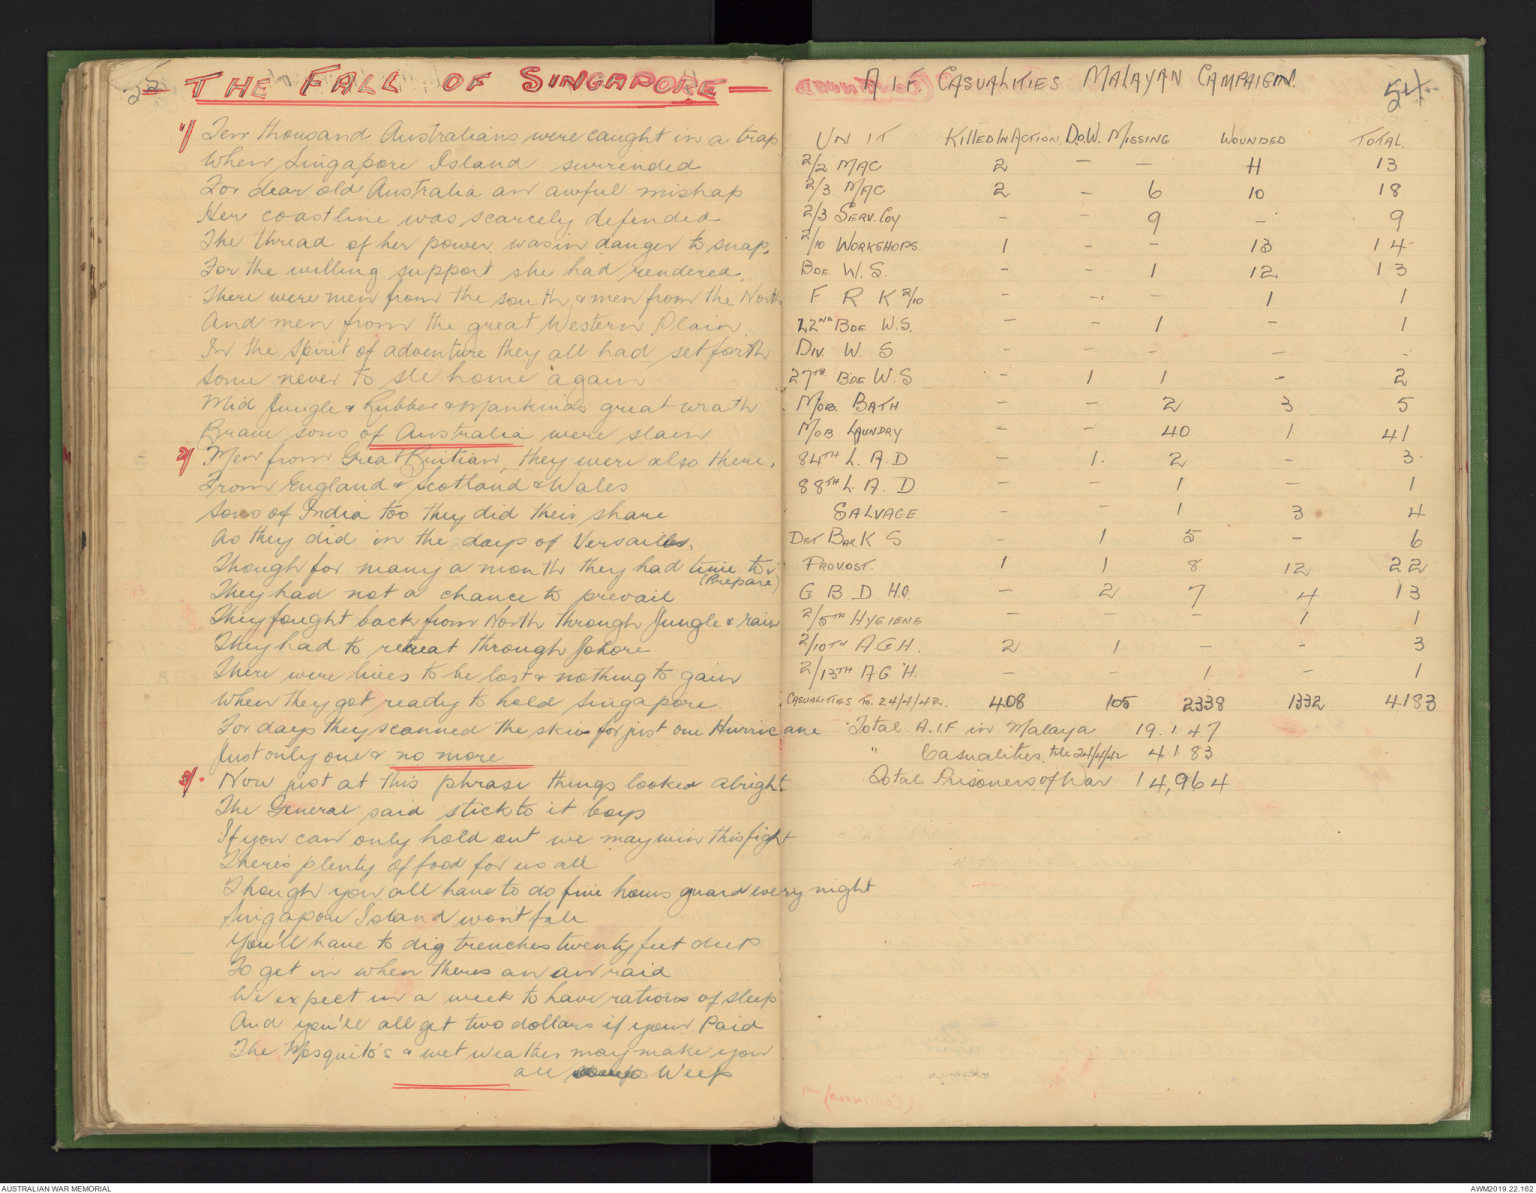 25
— THE FALL OF SINGAPORE —
1/ Ten thousand Australians were caught in a trap
When Singapore Island surrended
For dear old Australia an awful mishap
Her coastline was scarcely defended
The thread of her power was in danger to snap,
For the willing support she had rendered.
There were men from the south & men from the North
And men from the great Western Plain.
In the Spirit of adventure they all had set forth
Some never to see home again
Mid Jungle & Rubber & Mankinds great wrath
Brave sons of Australia were slain
2/ Men from Great Britian, they were also there,
From England & Scotland & Wales
Sons of India too they did their share
As they did in the days of Versailles,
Though for many a month they had time to
(Prepare)
They had not a chance to prevail
They fought back from North through Jungle & rain
They had to retreat through Johore
There were lives to be lost & nothing to gain
When they got ready to hold Singapore.
For days they scanned the skies for just one Hurricane
Just only one & no more
3/. Now just at this phrase things looked alright
The General said stick to it boys
If you can only hold out we may win this fight
There's plenty of food for us all
Though you all have to do five hours guard every night
Singapore Island won't fall
You'll have to dig trenches twenty feet deep
To get in when theres an air raid
We expect in a week to have rations of sleep
And you'll all get two dollars if your Paid
The Mosquito's & wet weather may make you
all Weep
A.I.F CASUALITIES MALAYAN CAMPAIGN.
54
UNIT KILLED IN ACTION D.O.W. MISSING WOUNDED TOTAL.
2/2 MAC 2 — — 11 13
2/3 MAC 2 - 6 10 18
2/3 SERV. COY - - 9 - 9
2/10 WORKSHOPS. 1 - - 13 14
BDE W.S. - - 1 12 13
F R K 2/10 - - - 1 1
22ND BDE W.S. - - 1 - 1
DIV. W. S - - - - -
27TH BDE W.S - 1 1 - 2
MOB. BATH - - 2 3 5
MOB LAUNDRY - - 40 1 41
84TH L. A. D - 1. 2 - 3
88TH L. A. D - - 1 - 1
SALVAGE - - 1 3 4
DET BAR. K S - 1 5 - 6
PROVOST. 1 1 8 12 22
G B D H.Q. - 2 7 4 13
2/5TH HYGIENE - - - 1 1
2/10TH A.G.H. 2 1 - - 3
2/13TH A G H. - - 1 - 1
CASUALITIES TO. 24/4/42. 408 105 2338 1332 4183
Total A.I.F in Malaya 19.1.47
" Casualities till 24/4/42 41.83
Total Prisoners of War 14,964
AUSTRALIAN WAR MEMORIAL
AWM2019.22.162